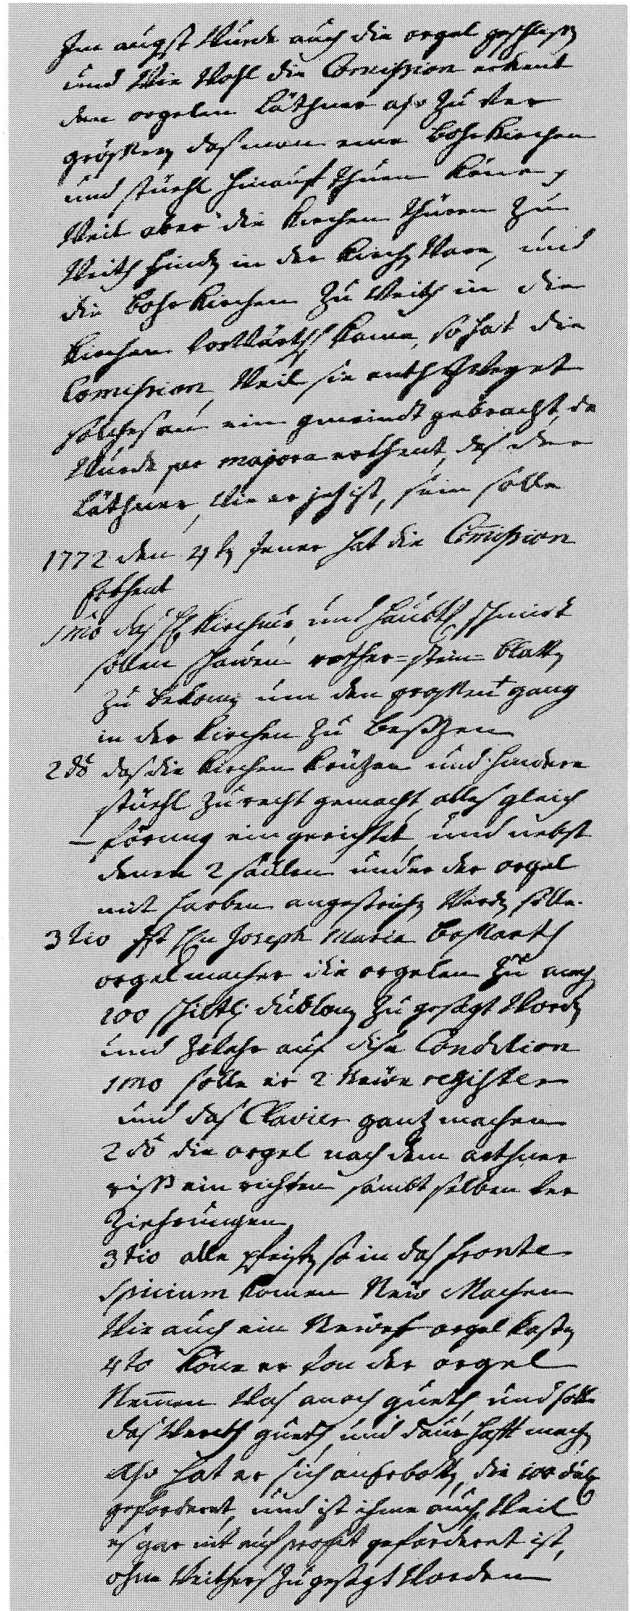 Im augst Wurde auch die orgel geschlißen
und Wie Wohl die Comission erkent
den orgelen läthner also zu ver
größern, daß man eine bohrkirchen
und stüehl hinauf thuen köne,
Weil aber die kirchen thüren zu
Weith hinden in der kirchen Ware, und
die bohrkirchen zu Weith in die
kirchen vorWärths kame, so hat die
Comission, Weil sie enthzWeyet
solches an ein gemeindt gebracht, da
Wurde per majora erkhent, das der
läthner, Wie er jetz ist, sein solle
1772 den 4ten Jener hat die Comission
Erkhent
1mo das H kirchner und haubth schmidt
sollen schauen rother-stein-blatten
zu bekomen um den großen gang
in der kirchen zu besezen
2do das die kirchen krützen und hindere
stüehl zurecht gemacht, alles gleich
förmig eingerichtet, und nebst
denen 2 säulen under der orgel
mit farben angestrichen Werden solle.
3tio ist Hn Joseph Maria boßarth
orgelmacher die orgelen zu machen
100 schiltl dublonen zu gesagt Worden
und zWahr auf dise Condition
1mo solle er 2 Neüe register
und das Clavier gantz machen
2do die orgel nach dem arthner
riss ein richten sambt selben ver
Ziehrungen
3tio alle pfeiffen so in das fronte
spicium komen Neüw Machen
Wie auch ein Neüwes orgel kasten
4to köne er von der orgel
Nemmen Was anoch gueth und solle
das Werch gueth und daurhafft machen
Also hat er sich anerbotten, die 100 dubl
geforderet, und ist ihme auch Weil
es gar nit auf profit geforderet ist,
ohne Weithers zu gesagt Worden